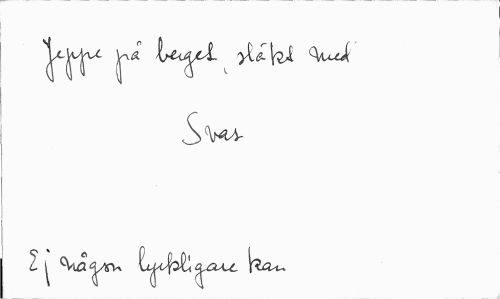 Jeppe på berget, släkt med
Svar
Ej någon lyckligare kan